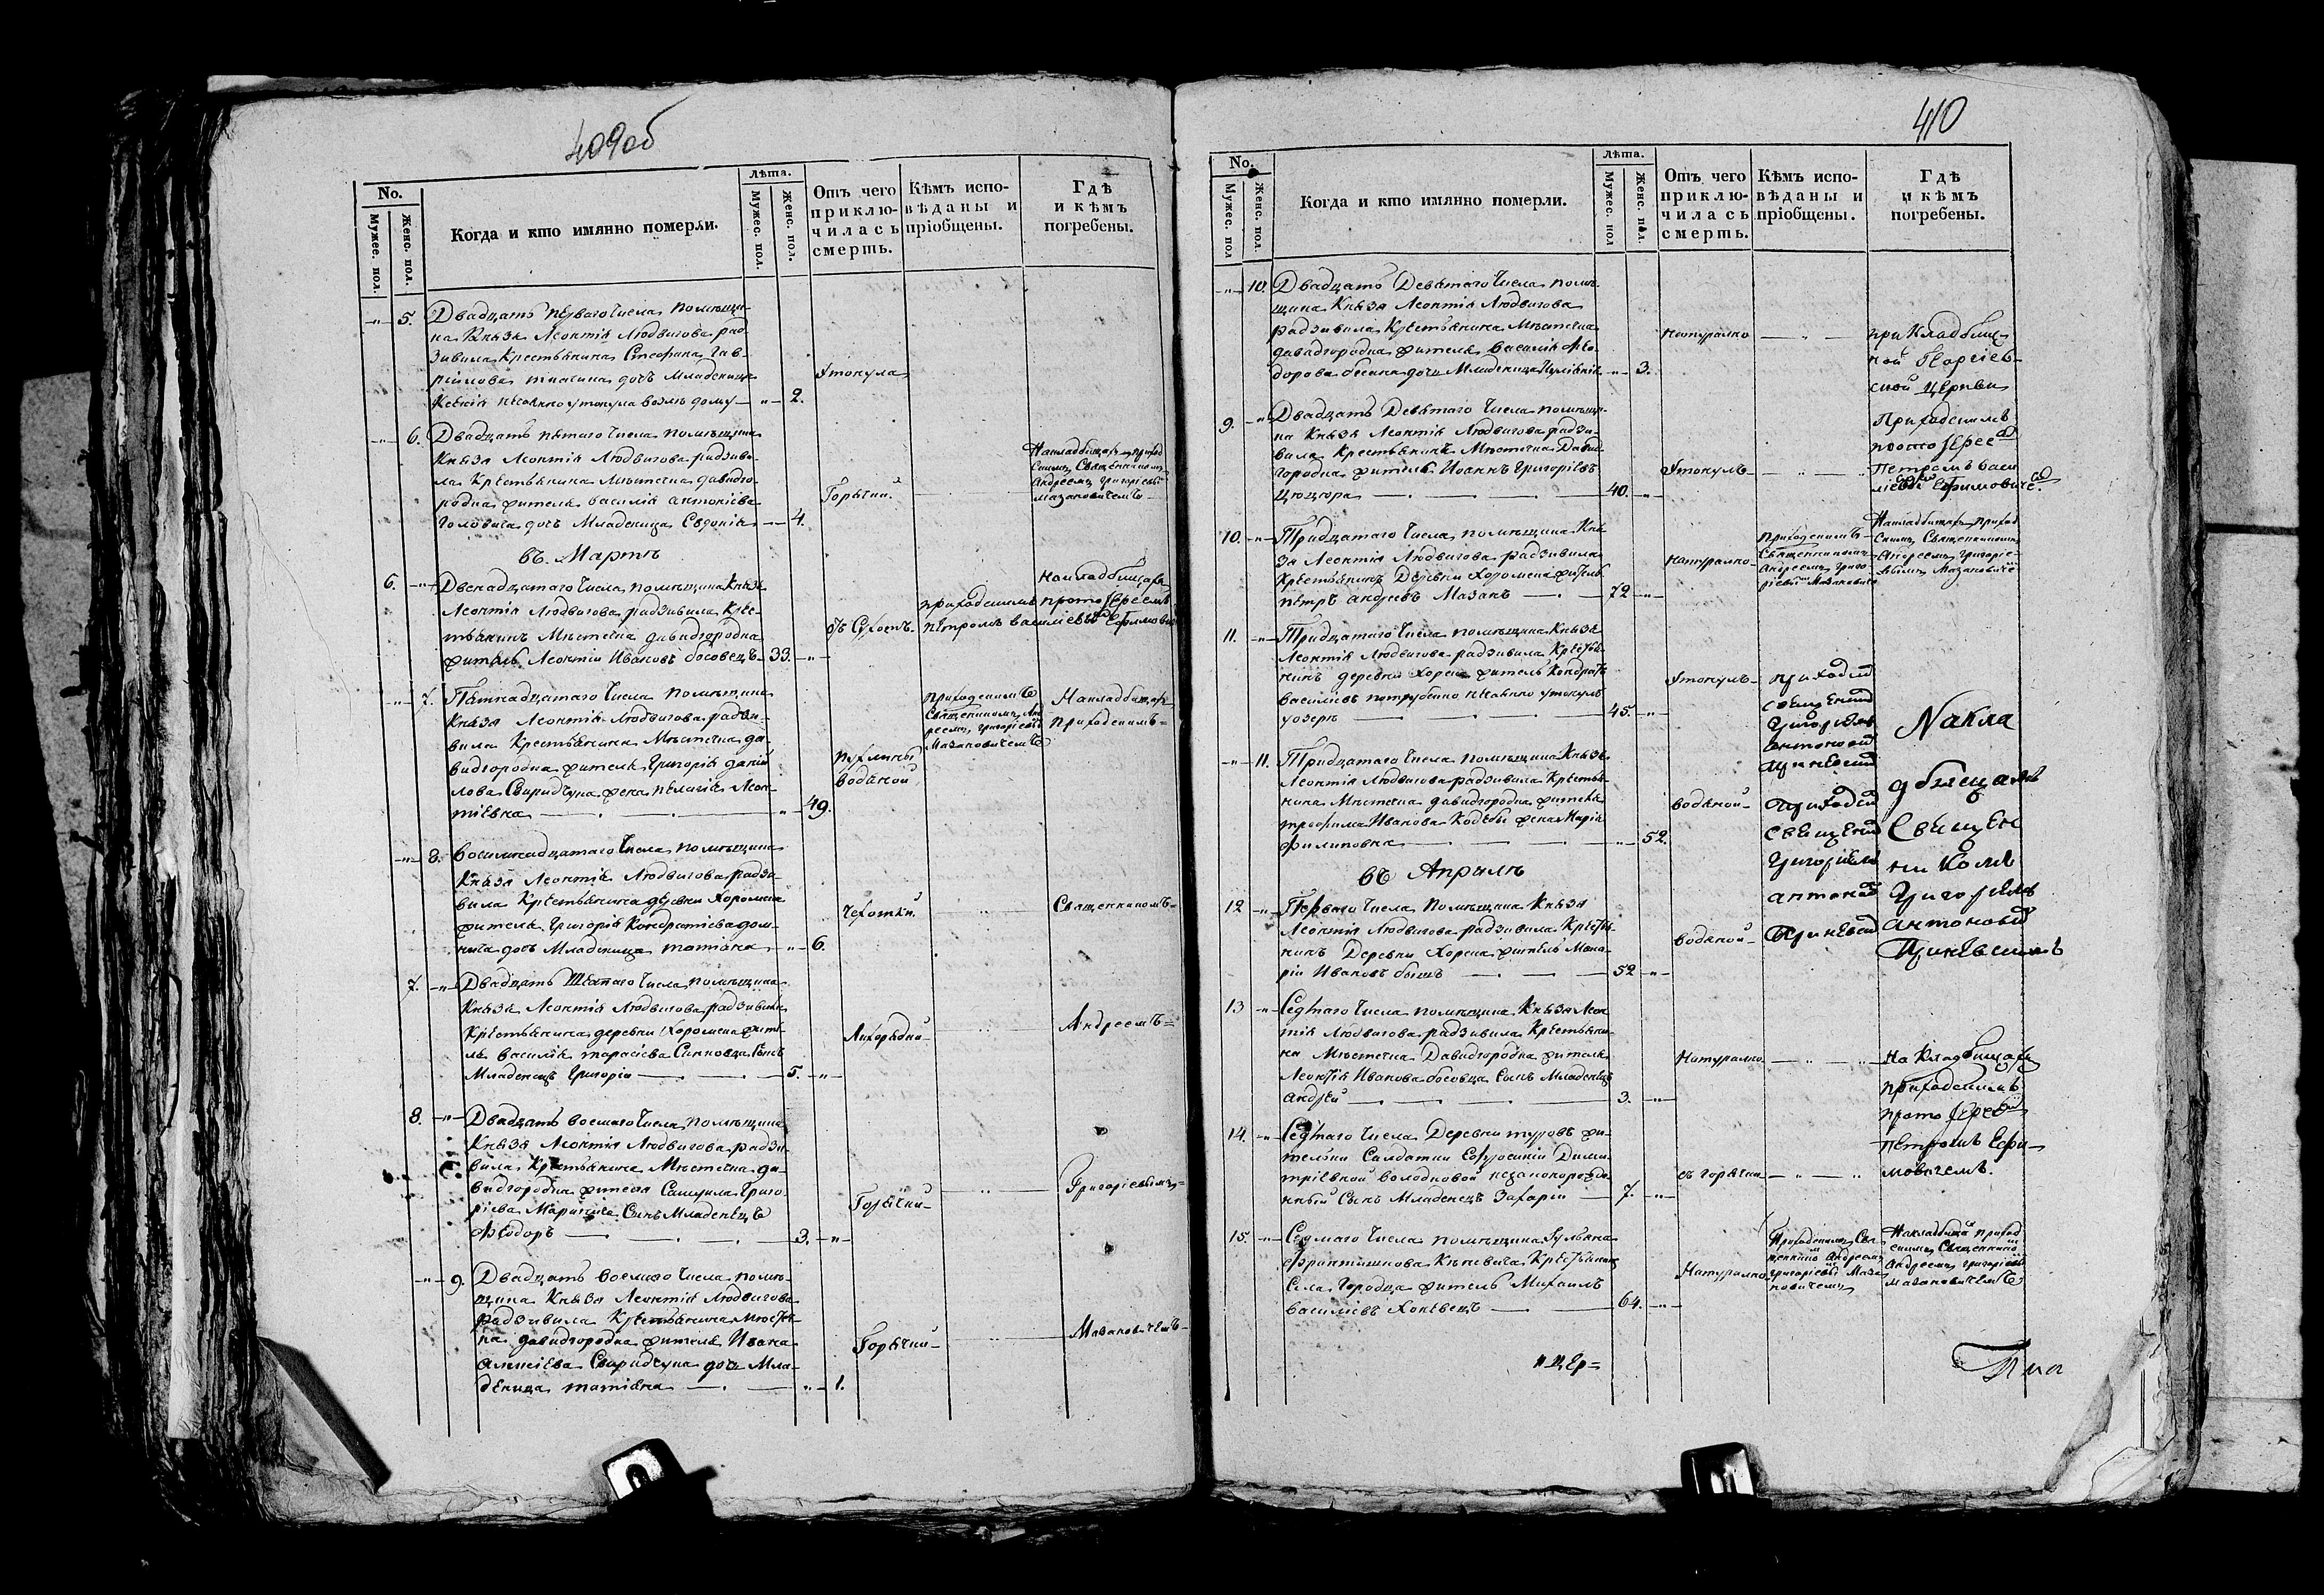 409об
No.
Мужес. пол.
Женс. пол.
Когда и кто имянно померли.
Лѣта.
Мужес. пол.
Женс. пол.
Отъ чего
приклю-
чилась
смерть.
Кѣмъ испо-
вѣданы и
пріобщены.
Гдѣ
и кѣмъ
погребены.
5. Двадцать перваго Числа помѣщи-
ка Князя Леонтія Людвигова рад-
зивила Крестьянина Стефана Гав-
дочь Младеница
нечаянно утонула возлѣ дому 2.
Утонула
6. Двадцать пятаго Числа помѣщика
Князя Леонтія Людвигова радзиви-
ла Крестьянина Мѣстечка давидго-
родка жителя василія антоніева
дочь Младеница Евдокія 4.
Горячки
На кладбищахъ приход
скимъ Священникомъ
Андреемъ григоріевы
мазановичемъ
въ Мартѣ
6. Двенадцатаго Числа помѣщика Князя
Леонтія Людвигова радзивила Кре-
стьянинъ Мѣстечка давидгородка
житель Леонтій Ивановъ босовецъ 33.
Приходскимъ протоіереемъ
Петромъ василіевы Ефимови
на кладбищахъ
7. Пятнадцатаго Числа помѣщика
Князя Леонтія Людвигова радзи-
вила Крестьянина Мѣстечка да-
видгородка жителя Григорія даній
лова Свиридчука жена пелагія Леон-
тіевна 49.
пухлины
водяной
приходскимъ
Священникомъ Анд
реемъ григоріевы
Мазановичемъ
На кладбищахъ
приходскимъ
8. Восимнадцатаго Числа помѣщика
Князя Леонтія Людвигова радзи-
вила Крестьянина деревни Хоромска
жителя Григорія Кондратіева дом-
нича дочь Младеница татіана 6.
Чехотки
Священникомъ
7. Двадцать Шестаго Числа помѣщика
Князя Леонтія Людвигова радзивила
Крестьянина деревни Хоромска жите-
ля василія тарасіева Синковца Сынъ
Младенецъ Григорій 5.
Андреемъ
8. Двадцать восмаго Числа помѣщика
Князя Леонтія Людвигова радзи-
вила Крестьянина Мѣстечка да-
видгородка жителя Самуила Григо-
ріева Маринича Сынъ Младенецъ
Ѳеодоръ 3.
Горячки
Григоріевымъ
9. Двадцать восмаго Числа помѣ-
щика Князя Леонтія Людвигова
радзивила Крестьянина Мѣстеч-
ка давидгородка жителя Ивана
Алексіева Свиридчука дочь Мла-
деница татіана 1.
Горячки
Мазановичемъ
410
No.
Мужес. пол
Женс. пол.
Когда и кто имянно померли.
Лѣта.
Мужес. пол
Женс. пол.
Отъ чего
приклю-
чилась
смерть.
Кѣмъ испо-
вѣданы и
пріобщены.
Гдѣ
и кѣмъ
погребены.
10. Двадцать Девятаго Числа помѣ-
щика Князя Леонтія Людвигова
радзивила Крестьянина Мѣстечка
давидгородка жителя василія Ѳео-
дорова дочь Младеница 3.
натурално
при Кладбищ
ной Георгіев-
ской Церкви
9. Двадцать Девятаго Числа помѣщи-
ка Князя Леонтія Людвигова радзи-
вила Крестьянинъ Мѣстечка Давид
городка житель Иоаннъ Григоріевъ
40.
Утонулъ
Приходскимъ
протоіерее
Петромъ васи
ліевы Ефимовиче
10. Тридцатаго Числа помѣщика Кня
зя Леонтія Людвигова радзивила
Крестьянинъ Деревни Хоромска житель
Петръ андреевъ Мазанъ 72
натурално
приходскимъ
Священникомъ
Андреемъ григо
ріевы Мазанович
На кладбищахъ приход
скимъ Священникомъ
Андреемъ григоріе
вымъ Мазановиче
11. Тридцатаго Числа помѣщика Князя
Леонтія Людвигова радзивила Крестья
нинъ деревни Хорска житель Кондратъ
василіевъ нечаянно утонулъ
уозерѣ 45.
Утонулъ
приход
священни
Григоріемъ
антонов
11. Тридцатаго Числа помѣщика Князя
Леонтія Людвигова радзивила Крестья
нина Мѣстечка давидгородка жителя
трофима Иванова жена Марія
филиповна 52.
водяной
приход
священни
Григоріем
антонов
На кла
дбищахъ
Священ
никомъ
Григоріемъ
антонов
въ Апрѣлѣ
12 Перваго Числа помѣщика Князя
Леонтія Людвигова радзивила Крестья
нинъ Деревни Хорска житель Мака-
рій Ивановъ 52
водяной
13 Седмаго Числа помѣщика Князя Леон
тія Людвигова радзивила Крестьяни-
на Мѣстечка Давидгородка жителя
Леонтія Иванова босовца Сынъ Младенецъ
Андрей 3.
Натурално
На кладбищахъ
приходскимъ
протоіерее
Петромъ Ефи-
мовичемъ.
14. Седмаго Числа Деревни туровъ жи-
телки Салдатки Ефросиніи Дими-
тріевной володковой незаконорожде
нный Сынъ Младенецъ Захарій 7.
съ горячки
15 Седмаго Числа помѣщика
Франтишкова Крестьянинъ
Села Городца житель Михаилъ
василіевъ 64.
Натурално
Приходскимъ Свя
щеннико Андреемъ
григоріевы Маза
новичемъ
На кладбищ приход
скимъ Священнико
Андреемъ григоріев
мазановичемъ